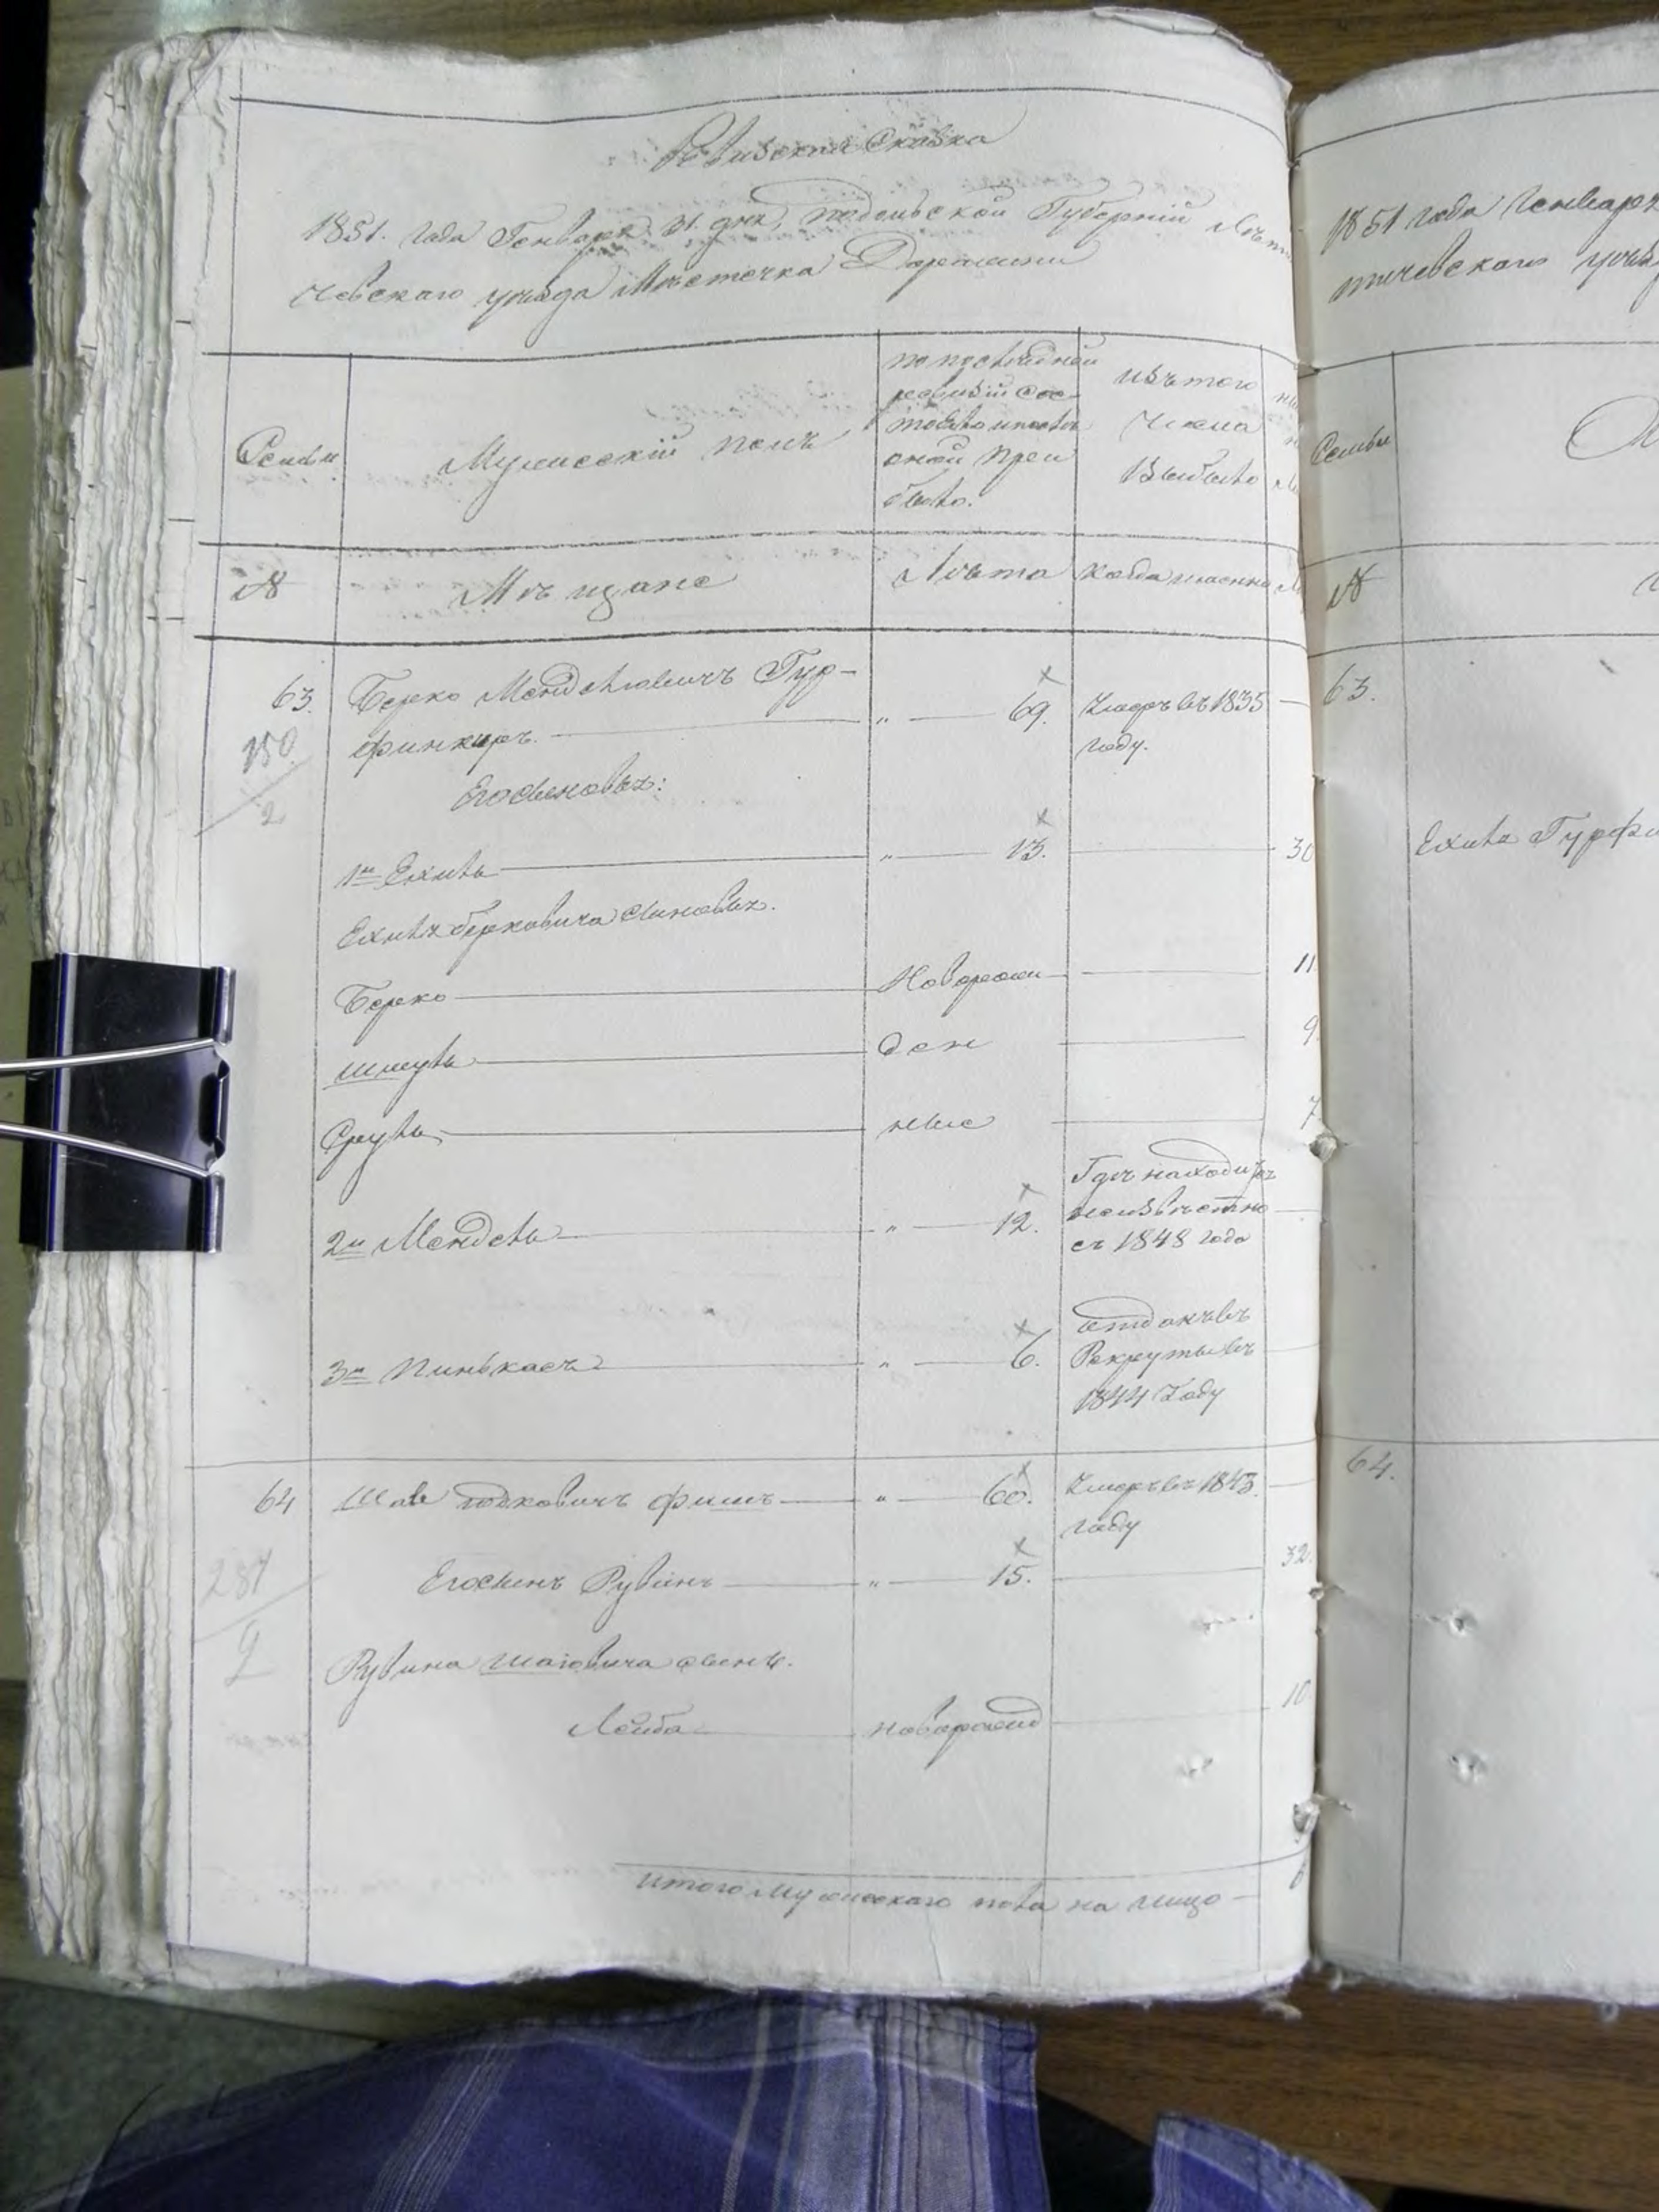 Ревизская Сказка
1851. Года Генваря 31. дня, подольской Губерніи Лѣти
чевскаго уѣзда Мѣстечка Деражни
Семьи
Мужескій полъ
по послѣдней
ревизіи сос-
тояло и послѣ
оной при
было.
изъ того
числа
выбыло
№
Мѣщане
Лѣта
когда именно
63.
Берко Мендelевичъ Гур-
финкиръ.
"
69.
Умеръ въ 1835
году.
150
2
Его сыновья:
1й Ехиль
"
13.
30
Ехиля берковича сыновья.
Берко
Новорож
11.
шмуль
ден
9.
Сруль
ные
7
2й Мендель
"
12.
Гдѣ находится
неизвѣстно
съ 1848 года
3й Пинькасъ
"
6.
отданъ въ
Рекруты въ
1844 Году
64
Шая фишъ
"
60.
Умеръ въ 1843.
году
281
2
Его сынъ Рувинъ
"
15.
32.
Рувина шаіовича сынъ.
Лейба
новорожд
10
итого мужескаго пола на лицо
6
1851 года Генваря
тичевскаго уѣзд
Семьи
№
63.
Ехиля Гурфи
64.